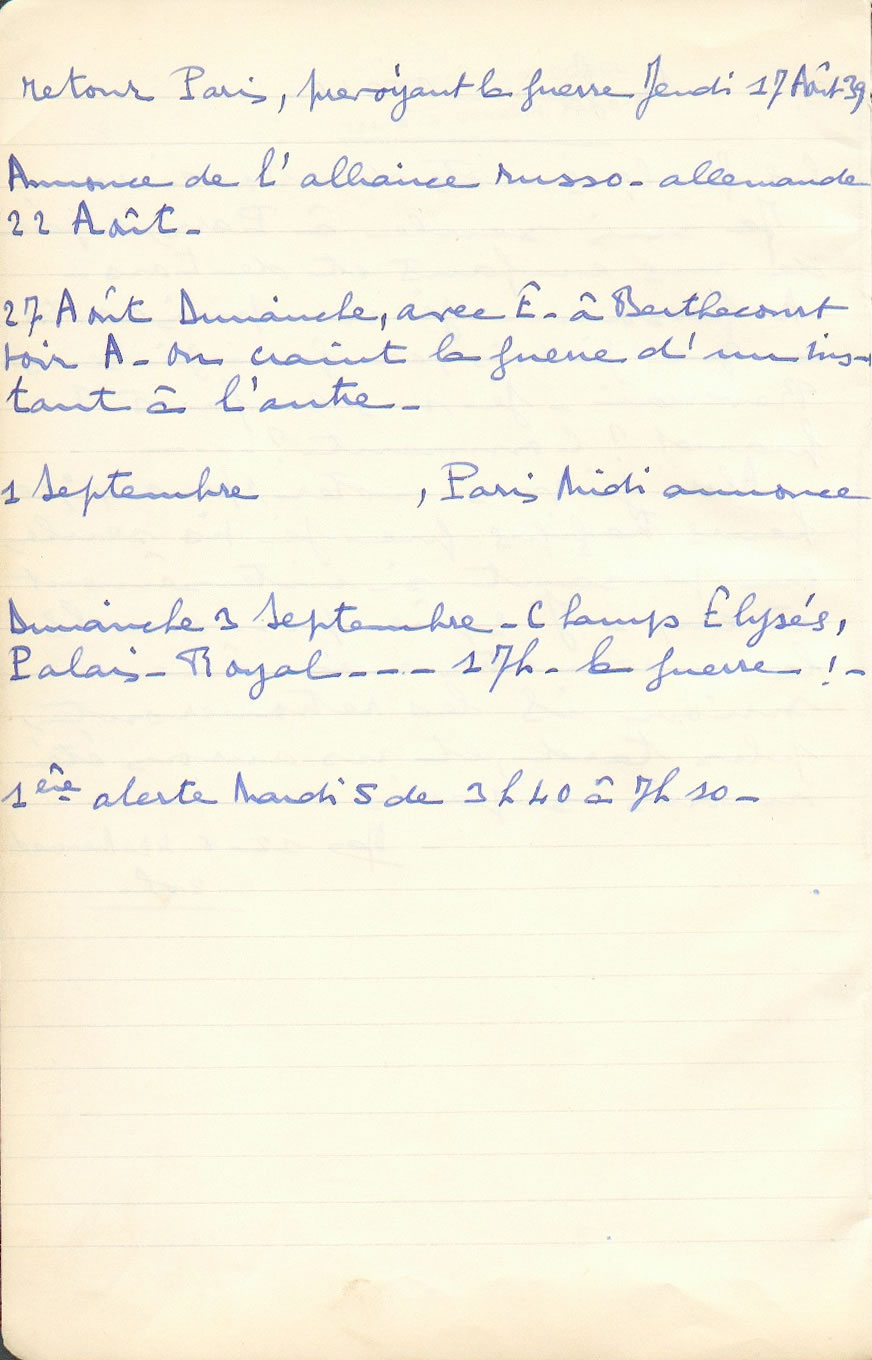 retour Paris, prevoyant la guerre Jendi 17 Août 39
Annonce de l'alliance russo-allemande
22 Août-
27 Août Dimanche, avec E- à Berthecourt
voir A- On craint la guerre d'un ins-
tant à l'autre-
1 Septembre , Paris Midi annonce
Dimanche 3 Septembre - Champs Elysés,
Palais-Royal --- 17h- la guerre !-
1ère alerte Mardi 5 de 3h40 à 7h10-